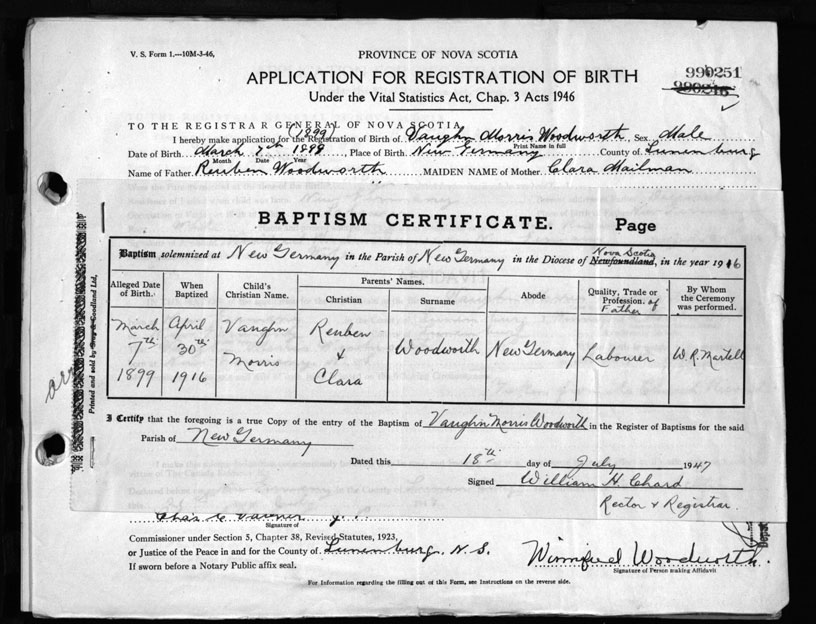 V. S. Form 1.—10M-3-46,
PROVINCE OF NOVA SCOTIA
APPLICATION FOR REGISTRATION OF BIRTH
Under the Vital Statistics Act, Chap. 3 Acts 1946
990251
990216
TO THE REGISTRAR GENERAL OF NOVA SCOTIA
(1899)
I hereby make application for the Registration of Birth of Vaughn Morris Woodworth Sex Male
Print Name in full
Date of Birth March 7th 1899, Place of Birth New Germany County of Lunenburg
Month Date Year
Name of Father Reuben Woodworth MAIDEN NAME of Mother Clara Mailman
BAPTISM CERTIFICATE. Page
Baptism solemnized at New Germany in the Parish of New Germany in the Diocese of Newfoundland, Nova Scotia in the year 1916
Alleged Date of Birth. When Baptized Child's Christian Name. Parents' Names. Christian Surname Abode Quality, Trade or Profession. of Father By Whom the Ceremony was performed.
March 7th 1899 April 30th 1916 Vaughn Morris Reuben & Clara Woodworth New Germany Labourer W. R. Martell
I Certify that the foregoing is a true Copy of the entry of the Baptism of Vaughn Morris Woodworth in the Register of Baptisms for the said
Parish of New Germany
Dated this 18th day of July 1947
Signed William H. Chard
Rector & Registrar.
Printed and sold by Gray & Goodland Ltd,
Signature of
Commissioner under Section 5, Chapter 38, Revised Statutes, 1923,
or Justice of the Peace in and for the County of Lunenburg, N. S.
If sworn before a Notary Public affix seal.
Winnifred Woodworth.
Signature of Person making Affidavit
For Information regarding the filling out of this Form, see Instructions on the reverse side.